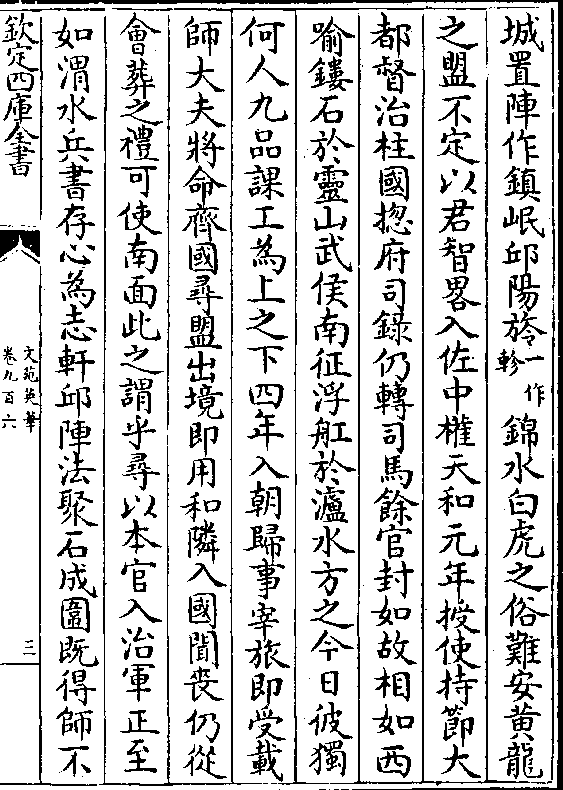 城置陣作鎮岷邱陽於冷一作軫錦水白虎之俗難安黄龍
之盟不定以君智畧入佐中權天和元年授使持節大
都督治柱國揔府司錄仍轉司馬餘官封如故相如西
喻鏤石於靈山武侯南征浮舡於瀘水方之今日彼獨
何人九品課工為上之下四年入朝歸事宰旅即受載
師大夫將命齊國尋盟出境即用和隣入國聞喪仍從
會葬之禮可使南面此之謂乎尋以本官入治軍正至
如渭水兵書存心為志軒邱陣法聚石成圖既得師不
欽定四庫全書
文苑英華
卷九百六
三